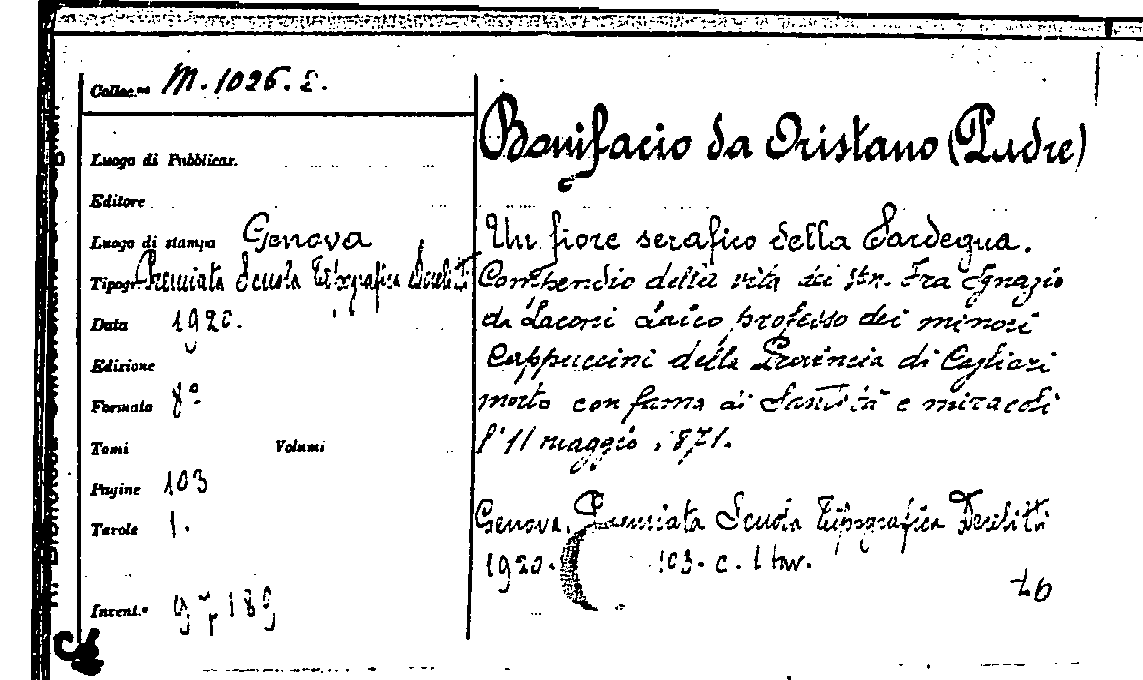 Colloc.ne M. 1026. 2.
Luogo di Pubblicaz.
Editore
Luogo di stampa Genova
Tipogr. Premiata Scuola Tipografica Derelitti
Data 1920.
Edizione
Formato 8º
Tomi Volumi
Pagine 103
Tavole 1.
Invent.º
Bonifacio da Oristano (Padre)
Un fiore serafico della Sardegna.
Compendio della vita di Fra Ignazio
da Laconi Laico professo dei minori
Cappuccini della Provincia di Cagliari
morto con fama di Santità e miracoli
l'11 maggio 1871.
Genova, Premiata Scuola Tipografica Derelitti
1920. 103. c. 1 tav.